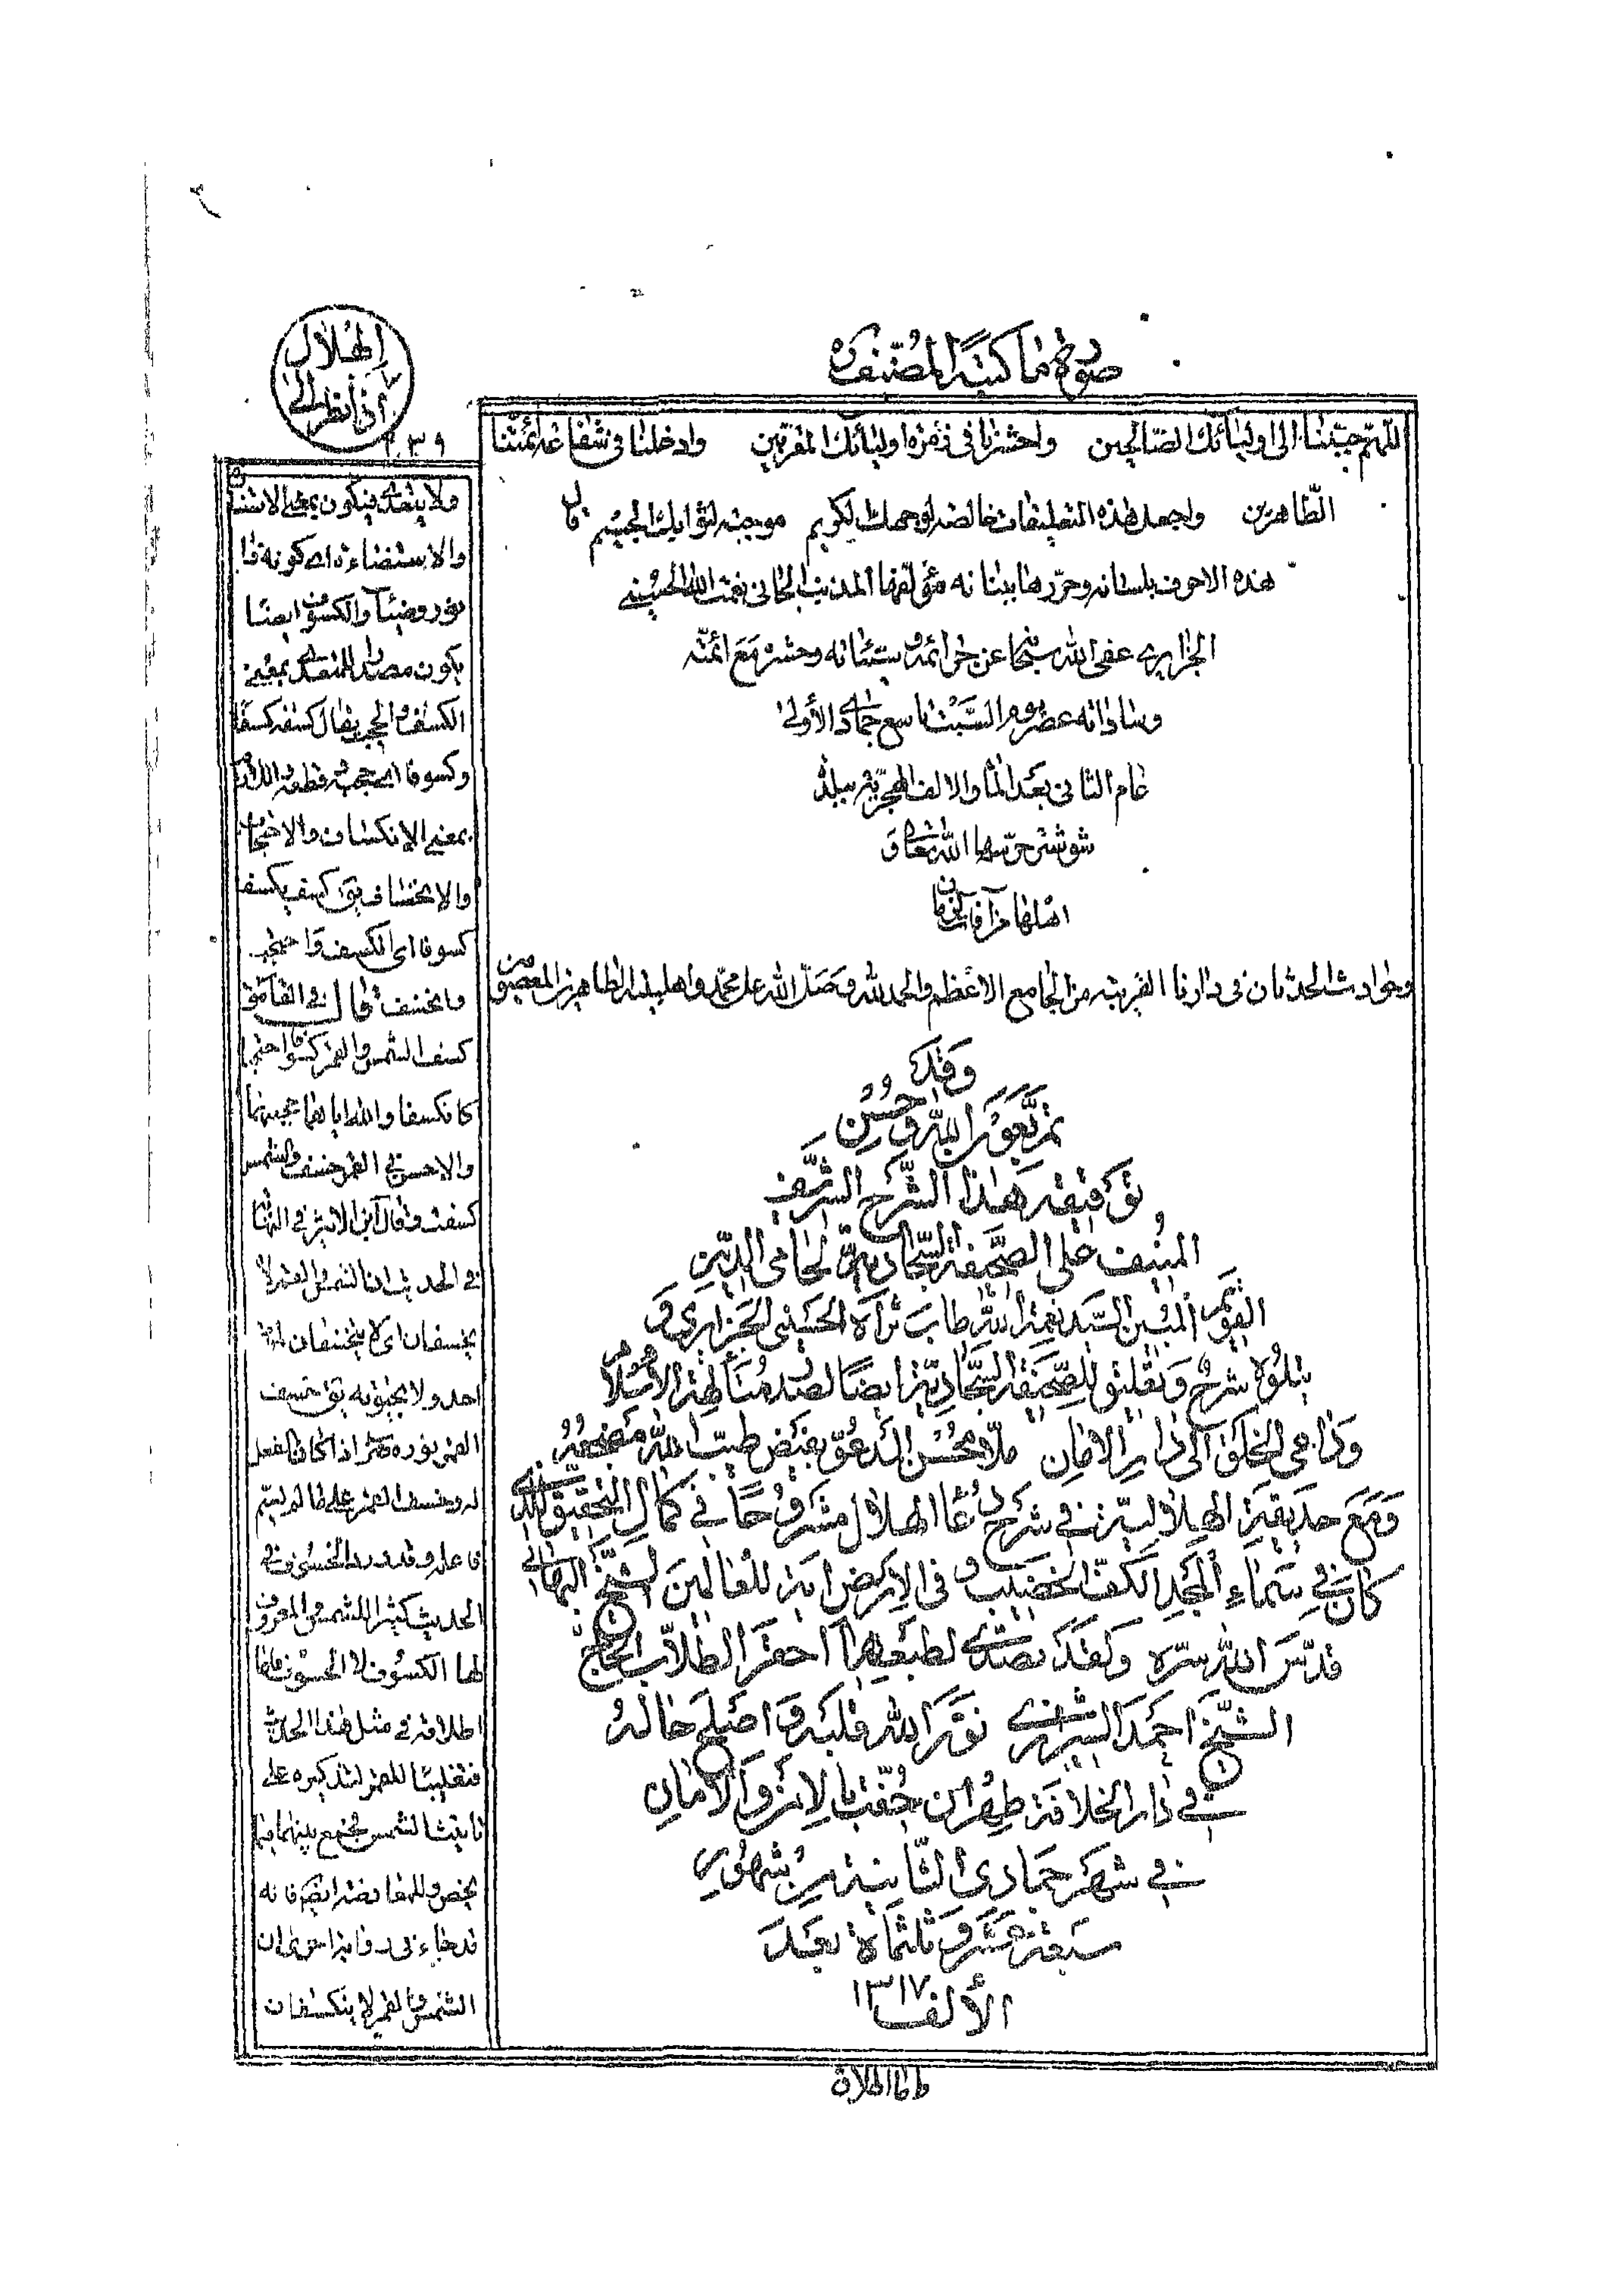 صورة ما كتبه المصنف ره
إلى الهلال
إذا نظر
٢٣٩
اللهم حببنا الى اوليائك الصالحين واحشرنا في زمرة اوليائك المقربين وادخلنا في شفاعة ائمتنا
الطاهرين واجعل هذه التعليقات خالصة لوجهك الكريم موجبة لثوابك الجسيم قال
هذه الاحرف بلسانه وحررها ببنانه مؤلفها المذنب الجاني نعمت الله الحسيني
الجزايري عفى الله سبحانه عن جرائمه وسيئاته وحشره مع ائمته
وساداته عصر يوم السبت تاسع جمادى الأولى
عام الثاني بعد المأة والالف الهجرية ببلدة
شوشتر حرسها الله تعالى و
اهلها من آفات الزمان
وحوادث الحدثان في دارنا القريبة من الجامع الاعظم والحمد لله وصلى الله على محمد واهل بيته الطاهرين المعصومين
وقد
تم بعون الله وحسن
توفيقه هذا الشرح الشريف
المنيف على الصحيفة السجادية لحامي الدين
القويم المبين السيد نعمة الله طاب ثراه الحسيني الجزايري و
يتلوه شرح وتعليق للصحيفة السجادية ايضا لصدر متألهة الاسلام
وداعي الخلق الى دار الامان ملا محسن المدعو بفيض طيب الله مضجعه
ومع حديقة الهلالية في شرح دعاء الهلال مشروحا في كمال التحقيق للذي
كان في سماء المجد الكف الخضيب وفي الارض اية للعالمين الشيخ البهائي
قدس الله سره ولقد تصدى لطبعها احقر الطلاب الحاج
الشيخ احمد الشيرازي نور الله قلبه واصلح حاله
في دار الخلافة طهران حفت بالامن والامان
في شهر جمادى الثانية من شهور
سبعة عشر وثلثمأة بعد
الألف ١٣١٧
ولا يتعدى فيكون بمعنى
والاستضاءة اي كونه ذا
نور وضياء والكسوف ايضا
يكون مصدرا للمتعدي بمعنى
الكسف والحجب يقال كسفه كسفا
وكسوفا اي حجبه وقطعه
بمعنى الانكساف والاحتجاب
والانخساف يقال كسف يكسف
كسوفا اي انكسف واحتجب
وانخسف قال في القاموس
كسف الشمس والقمر كسوفا احتجبا
كانكسفا والله اياهما حجبهما
والاحسن في القمر خسف والشمس
كسفت وقال ابن الاثير في النهاية
في الحديث ان الشمس والقمر لا
يخسفان اي لا ينخسفان لموت
احد ولا لحيوته يقال خسف
القمر بوزن ضرب اذا كان الفعل
له وخسف القمر على ما لم يسم
فاعله وقد ورد الخسوف في
الحديث كثيرا للشمس والمعروف
لها الكسوف لا الخسوف فاما
اطلاقه في مثل هذا الحديث
فتغليبا للقمر لتذكيره على
تانيث الشمس فجمع بينهما فيما
يخص وللمعاوضة ايضا فانه
قد جاء في رواية اخرى ان
الشمس والقمر لا ينكسفان